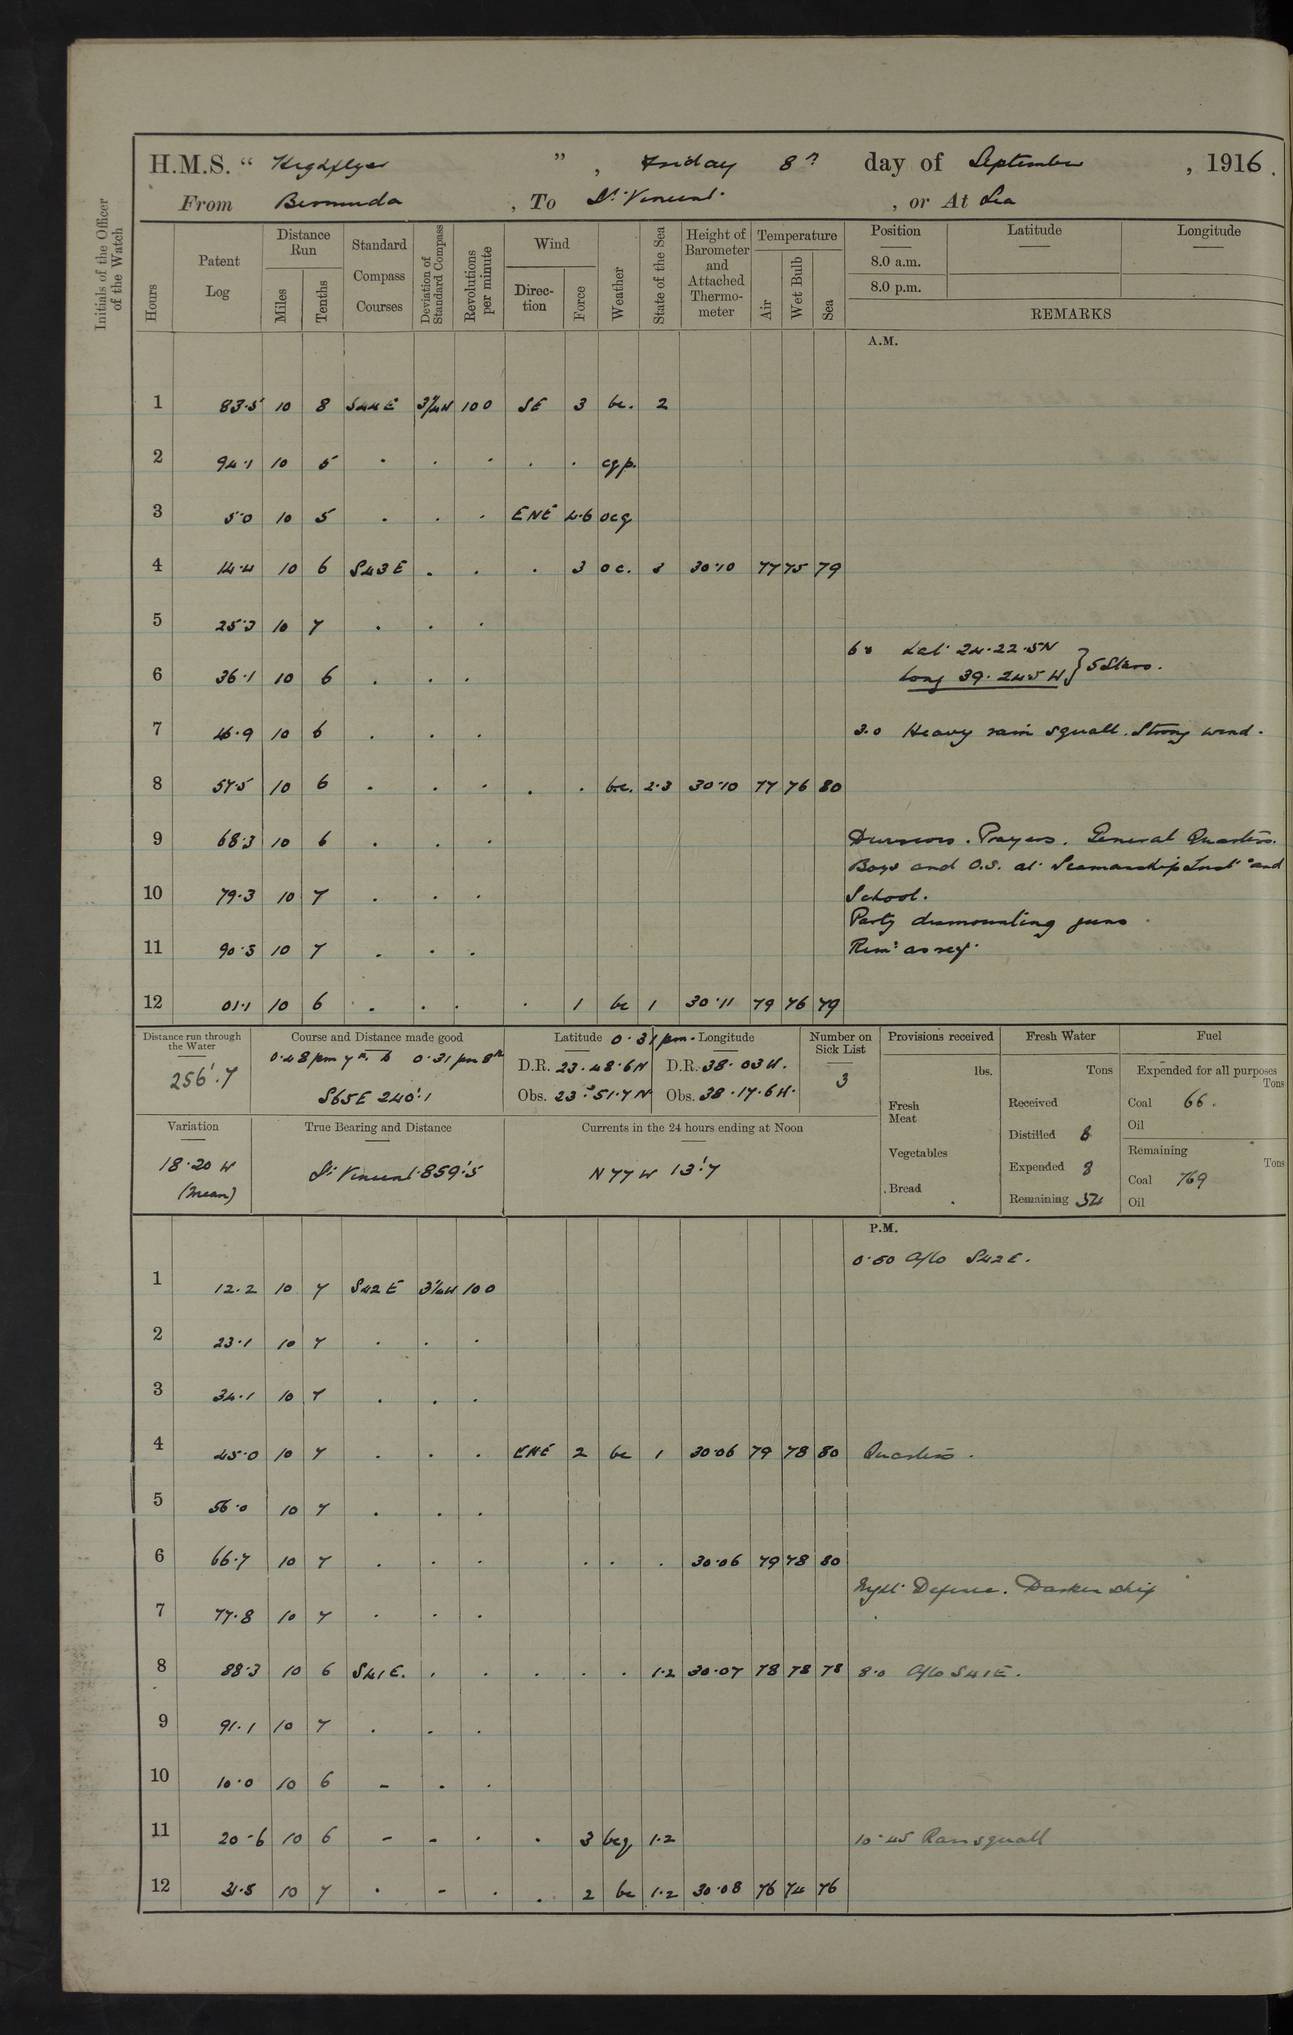 H.M.S. " Highflyer ", Friday 8th day of September, 1916.
From Bermuda, To St. Vincent, or At Sea
Initials of the Officer of the Watch
Hours Patent Log Distance Run Miles Tenths Standard Compass Courses Deviation of Standard Compass Revolutions per minute Wind Direction Force Weather State of the Sea Height of Barometer and Attached Thermometer Temperature Air Wet Bulb Sea
Position Latitude Longitude
8.0 a.m.
8.0 p.m.
REMARKS
A.M.
1 83.5 10 8 S44E 3¼W 100 SE 3 bc. 2
2 94.1 10 5 . . . . . cqp.
3 5.0 10 5 . . . ENE 4.6 ocq
4 14.4 10 6 S43E . . . 3 oc. 3 30.10 77 75 79
5 25.3 10 7 . . .
6.0 Lat. 24.22.5N
6 36.1 10 6 . . . Long 39.24.5 W } 5 Stars.
7 46.9 10 6 . . . 3.0 Heavy rain squall. Strong wind.
8 57.5 10 6 . . . . . bc. 2.3 30.10 77 76 80
9 68.3 10 6 . . . Divisions. Prayers. General Quarters.
Boys and O.S. at Seamanship Inst. and
10 79.3 10 7 . . . School.
Party dismounting guns
11 90.3 10 7 . . . Remr as req.
12 01.1 10 6 . . . . 1 bc 1 30.11 79 76 79
Distance run through the Water
256'.7
Course and Distance made good
0.48 pm 7th to 0.31 pm 8th
S65E 240'.1
Latitude 0.31 pm. Longitude
D.R. 23.48.6N D.R. 38.03W.
Obs. 23°.51.7N Obs. 38.17.6W.
Number on Sick List
3
Provisions received
lbs.
Fresh Meat
Vegetables
Bread
Fresh Water
Tons
Received
Distilled 8
Expended 8
Remaining 54
Fuel
Expended for all purposes
Tons
Coal 66.
Oil
Remaining
Tons
Coal 769
Oil
Variation
18.20 W
(Mean)
True Bearing and Distance
St. Vincent 859'.5
Currents in the 24 hours ending at Noon
N 77 W 13'.7
P.M.
0.50 A/Co S42E.
1 12.2 10 7 S42E 3¼W 100
2 23.1 10 7 . . .
3 34.1 10 7 . . .
4 45.0 10 7 . . . ENE 2 bc 1 30.06 79 78 80 Quarters.
5 56.0 10 7 . . .
6 66.7 10 7 . . . . . . 30.06 79 78 80
Night Defence. Darken ship
7 77.8 10 7 . . .
8 88.3 10 6 S41E. . . . . . 1.2 30.07 78 78 78 8.0 A/Co S41E.
9 91.1 10 7 . . .
10 10.0 10 6 - . .
11 20.6 10 6 - - . . 3 bcq 1.2 10.45 Rain squall
12 31.5 10 7 . - . . 2 bc 1.2 30.08 76 74 76